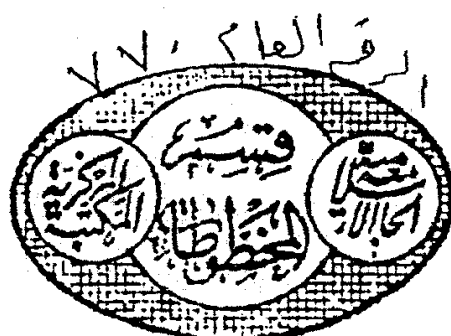 الرقم العام ٧٧٠
الجامعة الإسلامية
قسم
المخطوطات
المكتبة المركزية